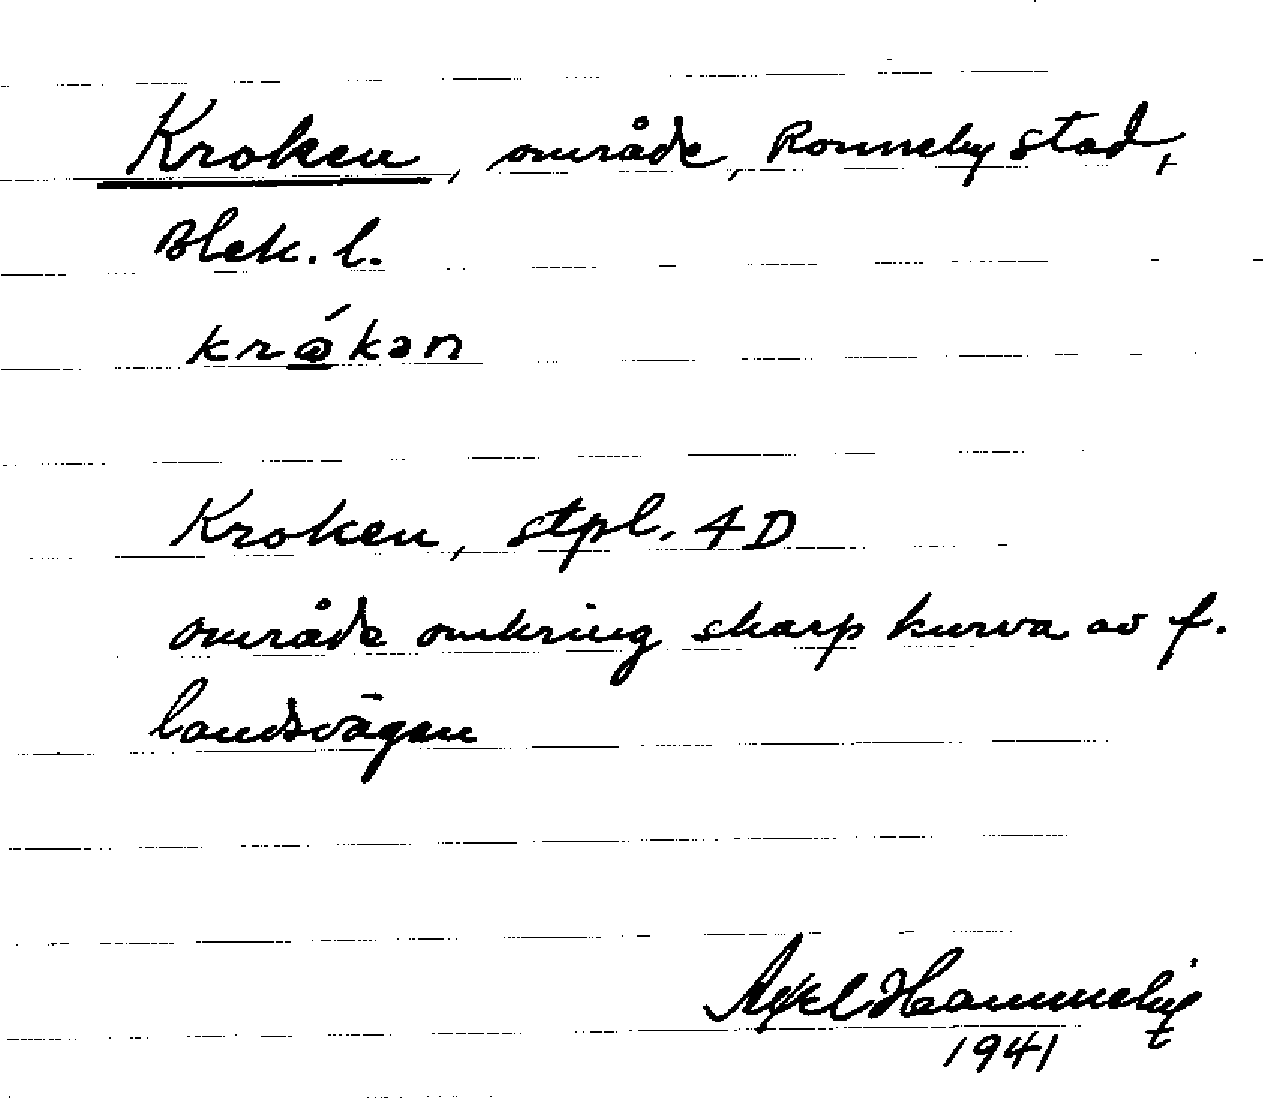 Kroken, område, Ronneby stad,
Blek. l.
krώ̲kən
Kroken, stpl. 4D
område omkring skarp kurva av f.
landsvägen
Axel
1941